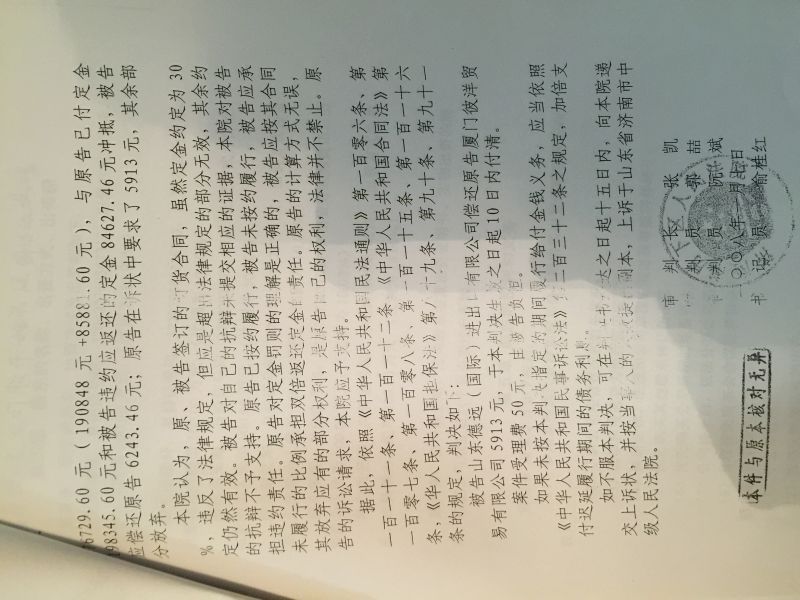 6729.60元（190848元+85881.60元），与原告已付定金
98345.60元和被告违约应返还的定金84627.46元冲抵，被告
应偿还原告6243.46元；原告在诉状中要求了5913元，其余部
分放弃。
本院认为，原、被告签订的订货合同，虽然定金约定为30
%，违反了法律规定，但应是超出法律规定的部分无效，其余约
定仍然有效。被告对自己的抗辩未提交相应的证据，本院对被告
的抗辩不予支持。原告已按约履行，被告未按约履行，被告应承
担违约责任。原告对定金罚则的理解是正确的，被告应按其合同
未履行的比例承担双倍返还定金的责任。原告的计算方式无误，
其放弃应有的部分权利，是原告自己的权利，法律并不禁止。原
告的诉讼请求，本院应予支持。
据此，依照《中华人民共和国民法通则》第一百零六条、第
一百一十一条、第一百一十二条《中华人民共和国合同法》第
一百零七条、第一百零八条、第一百一十五条、第一百一十六
条，《华人民共和国担保法》第八十九条、第九十条、第九十一
条的规定，判决如下：
被告山东德远（国际）进出口有限公司偿还原告厦门彼洋贸
易有限公司5913元，于本判决生效之日起10日内付清。
案件受理费50元，由被告负担。
如果未按本判决指定的期间履行给付金钱义务，应当依照
《中华人民共和国民事诉讼法》第二百三十二条之规定，加倍支
付迟延履行期间的债务利息。
如不服本判决，可在判决书送达之日起十五日内，向本院递
交上诉状，并按当事人的人数提交副本，上诉于山东省济南市中
级人民法院。
审 判 长 张 凯
判 员 郭 喆
判 员 阮 斌
二〇〇八年一月 日
书 记 员 俞桂红
本件与原本核对无异